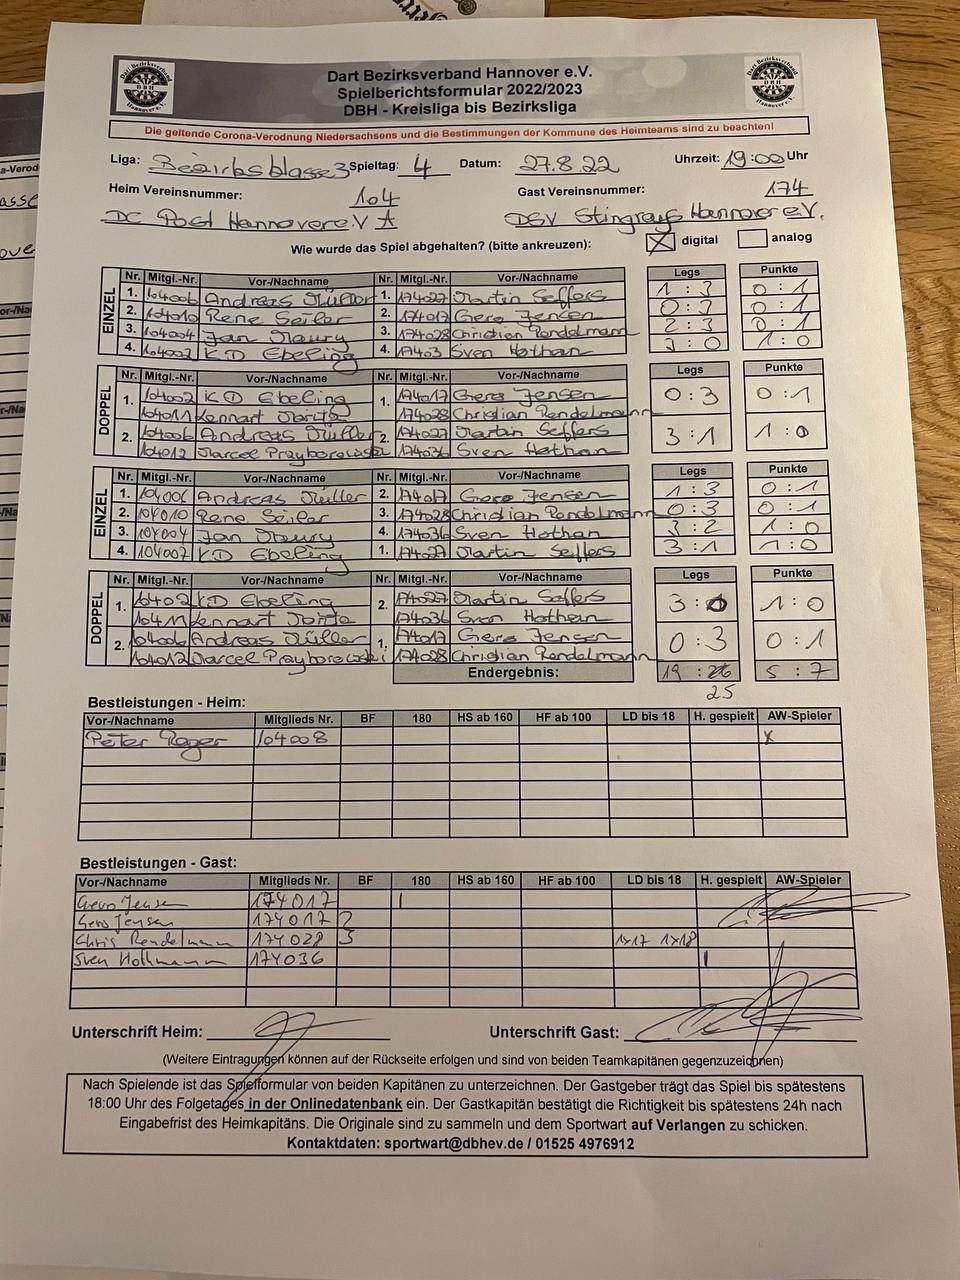 Dart Bezirksverband Hannover e.V.
Spielberichtsformular 2022/2023
DBH - Kreisliga bis Bezirksliga
Die geltende Corona-Verodnung Niedersachsens und die Bestimmungen der Kommune des Heimteams sind zu beachten!
Liga: Bezirksklasse 3 Spieltag: 4 Datum: 27.8.22 Uhrzeit: 19:00 Uhr
Heim Vereinsnummer: 104 Gast Vereinsnummer: 174
DC Post Hannover e.V A DSV Stingrays Hannover e.V.
Wie wurde das Spiel abgehalten? (bitte ankreuzen): X digital analog
EINZEL
Nr. Mitgl.-Nr. Vor-/Nachname Nr. Mitgl.-Nr. Vor-/Nachname Legs Punkte
1. 104006 Andreas Müller 1. 174027 Martin Seffers 1 : 3 0 : 1
2. 104010 Rene Seiler 2. 174017 Gero Jensen 0 : 3 0 : 1
3. 104004 Jan Maury 3. 174028 Christian Rendelmann 2 : 3 0 : 1
4. 104007 KD Ebeling 4. 17403 Sven Hothan 3 : 0 1 : 0
DOPPEL
Nr. Mitgl.-Nr. Vor-/Nachname Nr. Mitgl.-Nr. Vor-/Nachname Legs Punkte
1. 104002 KD Ebeling 1. 174017 Gero Jensen 0 : 3 0 : 1
104011 Lennart 174028 Christian Rendelmann
2. 104006 Andreas Müller 2. 174027 Martin Seffers 3 : 1 1 : 0
104012 Marcel Prayborowski 174036 Sven Hothan
EINZEL
Nr. Mitgl.-Nr. Vor-/Nachname Nr. Mitgl.-Nr. Vor-/Nachname Legs Punkte
1. 104006 Andreas Müller 2. 174017 Gero Jensen 1 : 3 0 : 1
2. 104010 Rene Seiler 3. 174028 Christian Rendelmann 0 : 3 0 : 1
3. 104004 Jan Maury 4. 174036 Sven Hothan 3 : 2 1 : 0
4. 104007 KD Ebeling 1. 174027 Martin Seffers 3 : 1 1 : 0
DOPPEL
Nr. Mitgl.-Nr. Vor-/Nachname Nr. Mitgl.-Nr. Vor-/Nachname Legs Punkte
1. KD Ebeling 2. 174027 Martin Seffers 3 : 0 1 : 0
Lennart 174036 Sven Hothan
2. 104006 Andreas Müller 1. 174017 Gero Jensen 0 : 3 0 : 1
104012 Marcel Prayborowski 174028 Christian Rendelmann
Endergebnis: 19 : 5 : 7
25
Bestleistungen - Heim:
Vor-/Nachname Mitglieds Nr. BF 180 HS ab 160 HF ab 100 LD bis 18 H. gespielt AW-Spieler
Peter Rager 104008 x
Bestleistungen - Gast:
Vor-/Nachname Mitglieds Nr. BF 180 HS ab 160 HF ab 100 LD bis 18 H. gespielt AW-Spieler
Gero Jensen 174017 1
Gero Jensen 174017 2
Chris Rendelmann 174028 3 1x17 1x18
Sven Hothmann 174036 1
Unterschrift Heim: Unterschrift Gast:
(Weitere Eintragungen können auf der Rückseite erfolgen und sind von beiden Teamkapitänen gegenzuzeichnen)
Nach Spielende ist das Spielformular von beiden Kapitänen zu unterzeichnen. Der Gastgeber trägt das Spiel bis spätestens
18:00 Uhr des Folgetages in der Onlinedatenbank ein. Der Gastkapitän bestätigt die Richtigkeit bis spätestens 24h nach
Eingabefrist des Heimkapitäns. Die Originale sind zu sammeln und dem Sportwart auf Verlangen zu schicken.
Kontaktdaten: sportwart@dbhev.de / 01525 4976912